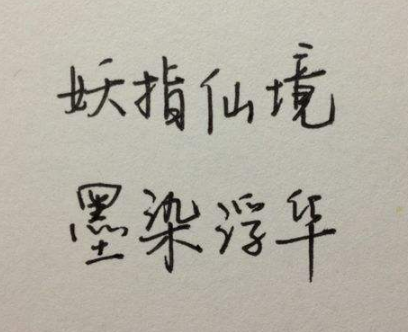 妖指仙境
墨染浮华